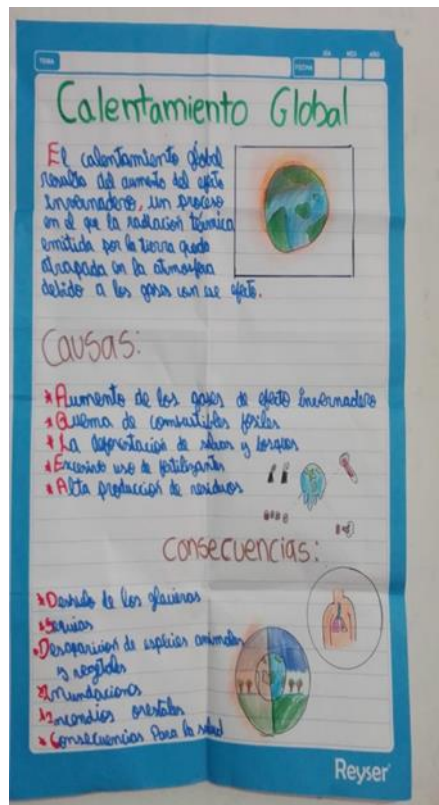 TEMA
FECHA
DÍA MES AÑO
Calentamiento Global
El calentamiento global
resulta del aumento del efecto
invernadero, un proceso
en el que la radiación térmica
emitida por la tierra queda
atrapada en la atmosfera
debido a los gases con ese efecto.
Causas:
*Aumento de los gases de efecto invernadero
*Quema de combustibles fósiles
*La deforestación de selvas y bosques
*Excesivo uso de fertilizantes
*Alta producción de residuos
Consecuencias:
*Deshielo de los glaciares
*Sequías
*Desaparición de especies animales
y vegetales
*Inundaciones
*Incendios orestales
*Consecuencias Para la salud
Reyser